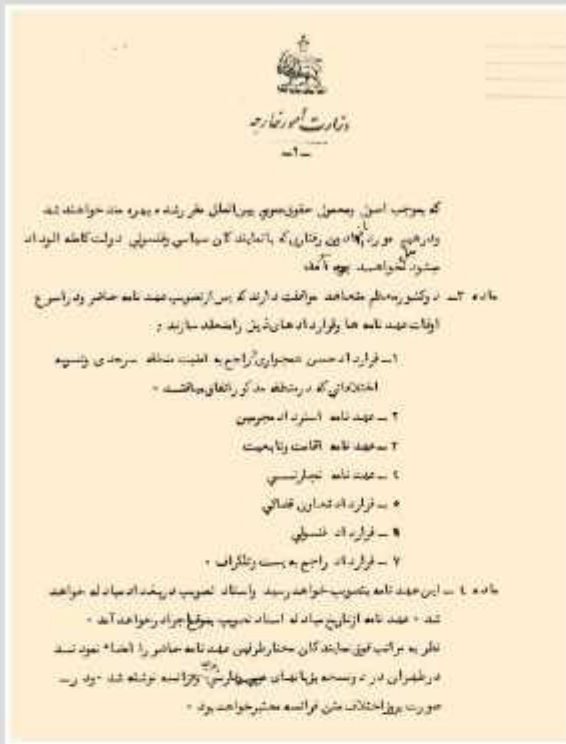 وزارت امور خارجه
ـ۲ـ
که بموجب اصول ومعمول حقوق عمومی بین المللی مقرر شده بهره مند خواهند شد
ودر هیچ مورد رفتاری که با نمایندگان سیاسی وقنسولی دولت کاملة الوداد
میشود نخواهد
ماده ۳ـ دو کشور معظم متعاهد موافقت دارند که پس از تصویب عهد نامه حاضر ودر اسرع
اوقات عهد نامه ها وقرارداد های ذیل را منعقد سازند
۱ـ قرارداد حسن همجواری راجع به امنیت منطقه سرحدی وتسویه
اختلافاتی که در منطقه مذکور اتفاق میافتد ٠
۲ ـ عهد نامه استرداد مجرمین
۳ ـ عهد نامه اقامت وتابعیت
٤ ـ عهد نامه تجارتی
٥ ـ قرارداد تعاون قضائی
٦ ـ قرارداد قنسولی
۷ ـ قرارداد راجع به پست وتلگراف ٠
ماده ٤ ـ این عهد نامه بتصویب خواهد رسید واسناد تصویب در بغداد مبادله خواهد
شد ٠ عهد نامه از تاریخ مبادله اسناد تصویب بموقع اجرا در خواهد آمد ٠
نظر به مراتب فوق نمایندگان مختار طرفین عهد نامه حاضر را امضاء نمودند
در طهران در دو نسخه بزبانهای فارسی وفرانسه نوشته شد ٠ ودر
صورت بروز اختلاف متن فرانسه معتبر خواهد بود ٠